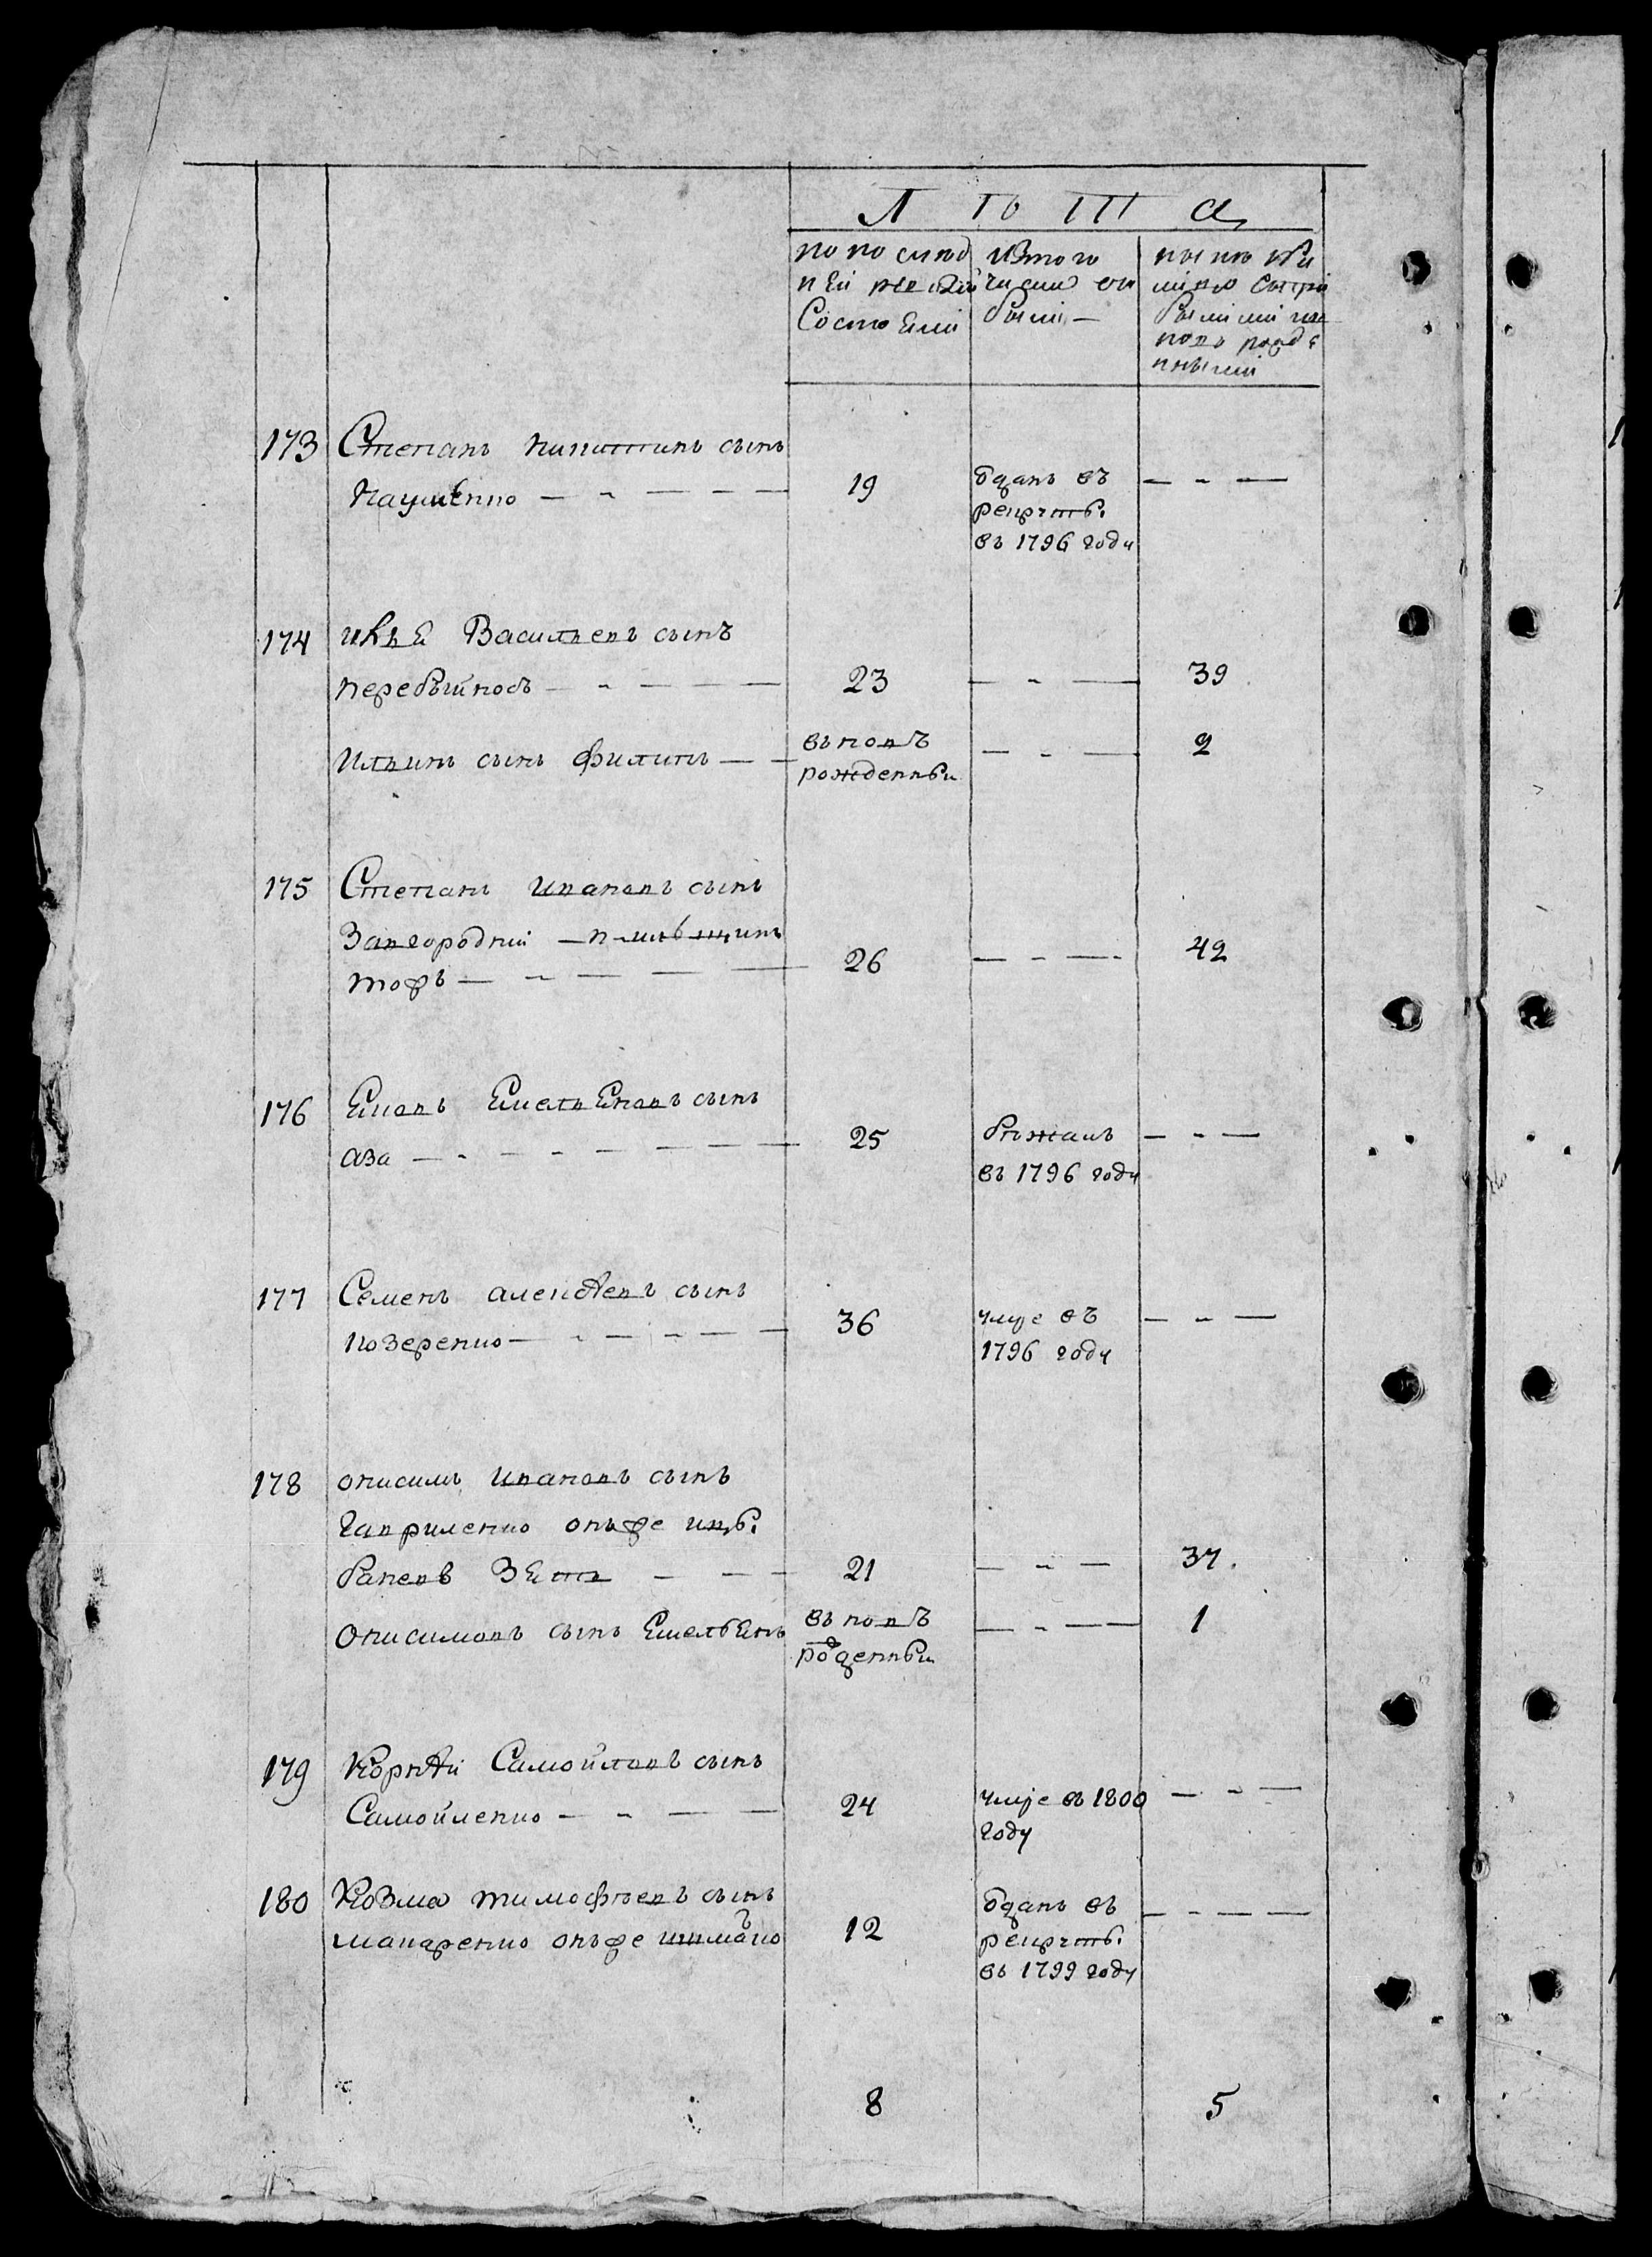 ЛѢТА
по послѣд
ней ревизіи
Состояли
изтого
числа вы
были —
нынѣ на
лицо съпри
былыми и в
новорожде
нными
173 Степанъ Никитинъ сынъ
Науменко — 19 — —
Отданъ въ
рекруты.
въ 1796 году
174 Илья Васильевъ сынъ
Перебыйносъ — 23 — 39
Ильинъ сынъ Филипъ — вновѣ
рожденный — 2
175 Степанъ Ивановъ сынъ
Загородній
26 — 42
176 Емельяновъ сынъ
25 — —
бѣжалъ
въ 1796 году
177 Семенъ Алексѣевъ сынъ
Козеренко — 36 — —
умре въ
1796 году
178 Онисимъ Ивановъ сынъ
Гавриленко онъже
зять — 21 — 37.
Онисимовъ сынъ Емельянъ вновѣ
рожденный — 1
179 Корнѣй Самойловъ сынъ
Самойленко — 24 — —
умре въ 1800
году
180 Козма Тимофѣевъ сынъ
Макаренко онъже
12 — —
Отданъ въ
рекруты.
въ 1799 году
8 5